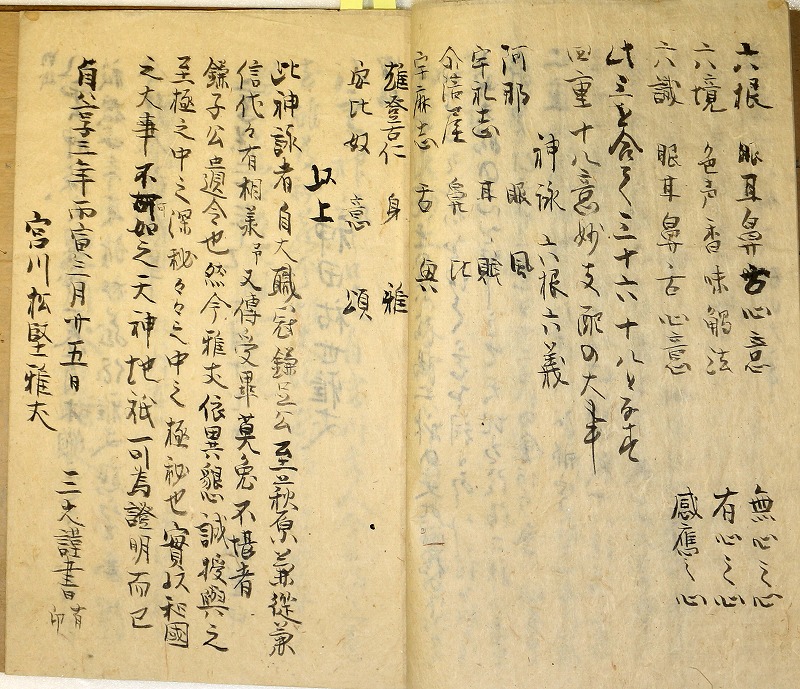 六根 眼耳鼻舌心意
六境 色声香味觸法
六識 眼耳鼻舌心意
無心之心
有心之心
感應之心
此三を合て三十六十八となす
四重十八意妙支配の大事
神詠 六根六義
阿那 眼 風
宇礼志 耳 賦
舌 鼻 比
宇麻志 舌 興
雄登古仁 身 雅
安比奴 意 頌
以上
此神詠者自大職冠鎌足公至萩原兼從兼
信代々有相承予又傳受畢莫免不堪者
鎌子公遺令也然今雅丈依異懇心誠授與之
至極之中之深秘々々之中之極秘也實以和國
之大事不可如之天神地祇可為證明而已
貞享三年丙寅三月廿五日 三丈謹書 有印
宮川松堅雅丈